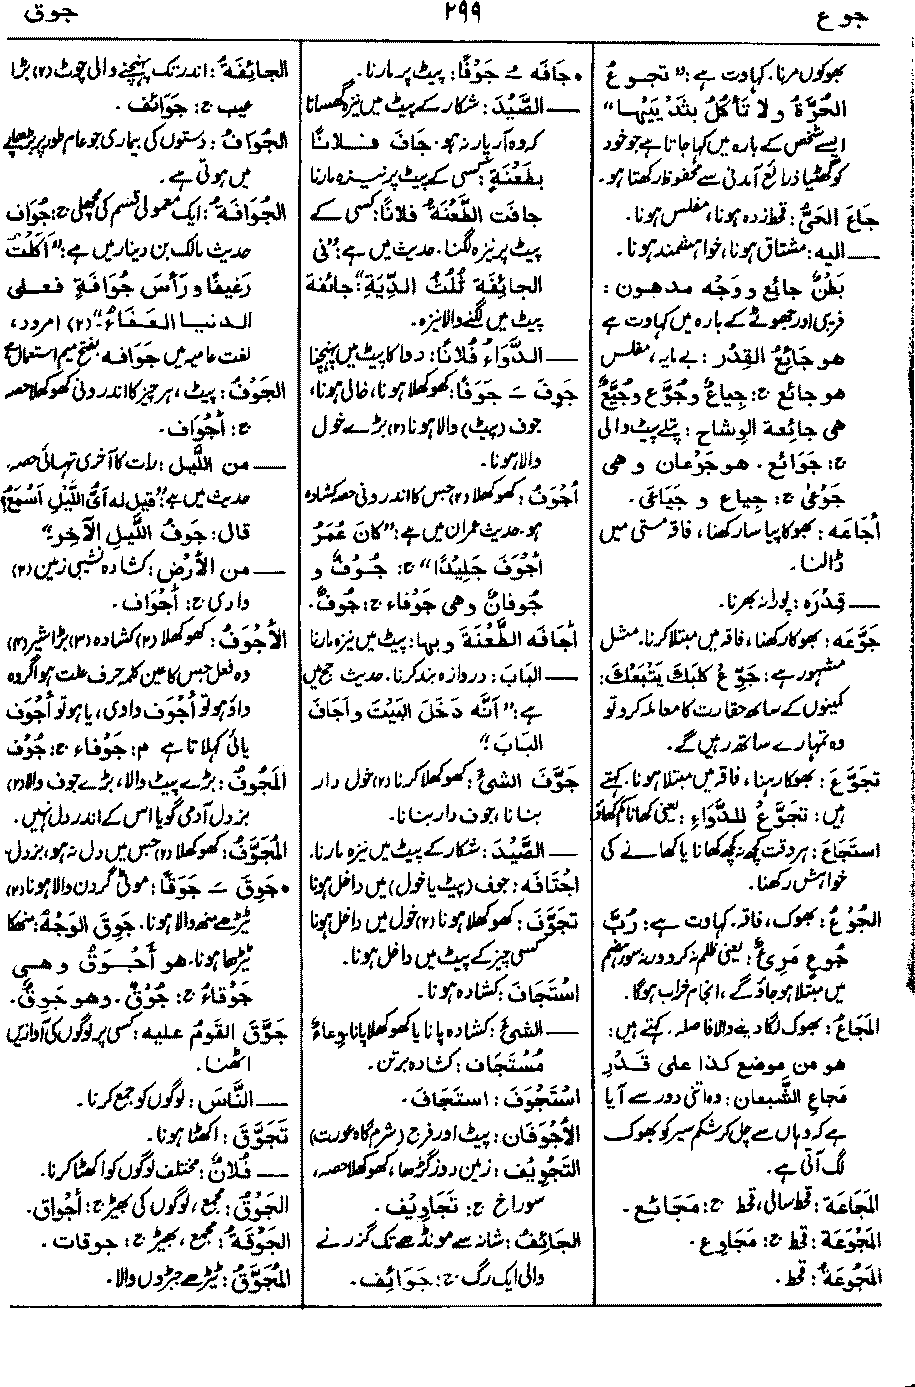 جوع
۲۹۹
جوق
بھوکوں مرنا. کہاوت ہے: "تجوعُ
الحُرَّةُ ولا تأكلُ بثَدْيَيْها"
ایسے شخص کے بارہ میں کہا جاتا ہے جو خود
کو گھٹیا ذرائع آمدنی سے محفوظ رکھتا ہو۔
جَاعَ الحَیُّ: قحط زدہ ہونا، مفلس ہونا۔
— الیه: مشتاق ہونا، خواہشمند ہونا۔
بَطْنٌ جائع ووَجْه مدهون:
فریبی اور جھوٹے کے بارہ میں کہاوت ہے
هو جَائعُ القِدْر: بے مایہ، مفلس
هو جائع ج: جِیاعٌ وجُوَّع وجُیَّعٌ
هی جائعة الوِشاح: پتلے پیٹ والی
ج: جَوَائع. هو جَوْعان وهی
جَوْعیٰ ج: جِیاع و جَیَاعَی.
أجَاعَه: بھوکا پیاسا رکھنا، فاقہ مستی میں
ڈالنا۔
— قِدْرَه: پورا نہ بھرنا۔
جَوَّعَه: بھوکا رکھنا، فاقہ میں مبتلا کرنا. مثل
مشہور ہے: جَوِّعْ كلبَكَ يَتْبَعْكَ:
کمینوں کے ساتھ حقارت کا معاملہ کرو تو
وہ تمہارے ساتھ رہیں گے۔
تَجَوَّعَ: بھوکا رہنا، فاقہ میں مبتلا ہونا. کہتے
ہیں: تجَوَّعْ للدَّوَاءِ: یعنی کھانا کم کھاؤ
استَجَاعَ: ہر وقت کچھ نہ کچھ کھانا یا کھانے کی
خواہش رکھنا۔
الجُوْعُ: بھوک، فاقہ. کہاوت ہے: رُبَّ
جُوعٍ مَرِیءٌ: یعنی ظلم نہ کرو ورنہ سورہضم
میں مبتلا ہو جاؤ گے، انجام خراب ہوگا۔
المَجَاعُ: بھوک لگا دینے والا فاصلہ. کہتے ہیں:
هو من موضع كذا على قَدْرِ
مَجاعِ الشَّبعان: وہ اتنی دور سے آیا
ہے کہ وہاں سے چل کر شکم سیر کو بھوک
لگ آتی ہے۔
المَجَاعَة: قحط سالی، قحط ج: مَجَائع.
المَجُوْعَة: قحط ج: مَجَاوِع.
المَجْوُعَةُ: قحط.
• جَافَه ُ جَوْفًا: پیٹ پر مارنا۔
— الصَّیْدَ: شکار کے پیٹ میں نیزہ گھسانا
کہ وہ آر پار نہ ہو. جَافَ فلانًا
بطَعْنَةٍ: کسی کے پیٹ پر نیزہ مارنا
جافَت الطَّعْنَةُ فلانًا: کسی کے
پیٹ پر نیزہ لگنا. حدیث میں ہے: "فی
الجائفة ثُلُثُ الدِّیَةِ": جائفة
پیٹ میں لگنے والا نیزہ۔
— الدَّوَاءُ فُلانًا: دوا کا پیٹ میں پہنچنا
جَوِفَ َ جَوَفًا: کھوکھلا ہونا، خالی ہونا،
جوف (پیٹ) والا ہونا (۲) بڑے خول
والا ہونا۔
أجْوَفُ: کھوکھلا (۲) جس کا اندرونی حصہ کشادہ
ہو. حدیث عمران میں ہے: "كانَ عُمَرُ
أجْوَفَ جَلِیْدًا" ج: جُوْفٌ و
جُوفانٌ وهی جَوْفاء ج: جُوفٌ.
أجَافَه الطَّعْنَةَ وبها: پیٹ میں نیزہ مارنا
— البَابَ: دروازہ بند کرنا. حدیث حج میں
ہے: "أنَّه دَخَلَ البَيْتَ وأجَافَ
البابَ"
جَوَّفَ الشیءَ: کھوکھلا کرنا (۲) خول دار
بنانا، جوف دار بنانا۔
— الصَّیْدَ: شکار کے پیٹ میں نیزہ مارنا۔
اجْتَافَه: جوف (پیٹ یا خول) میں داخل ہونا
تَجَوَّفَ: کھوکھلا ہونا (۲) خول میں داخل ہونا
کسی چیز کے پیٹ میں داخل ہونا۔
اسْتَجَافَ: کشادہ ہونا۔
— الشیءَ: کشادہ پانا یا کھوکھلا پانا وِعاءٌ
مُسْتَجَاف: کشادہ برتن۔
اسْتَجْوَفَ: استجَافَ.
الأجْوَفَان: پیٹ اور فرج (شرم گاہ عورت)
التَّجْوِیْف: زمین دوز گڑھا، کھوکھلا حصہ،
سوراخ ج: تَجَاوِیْف.
الجَائِفُ: شانہ سے مونڈھے تک گزرنے
والی ایک رگ ج: جَوَائِف.
الجائِفَةُ: اندر تک پہنچنے والی چوٹ (۲) بڑا
عیب ج: جَوَائف.
الجُوَافُ: دستوں کی بیماری جو عام طور پر
میں ہوتی ہے۔
الجُوَافَةُ: ایک معمولی قسم کی مچھلی ج: جُوَاف
حدیث مالک بن دینار میں ہے: "أكَلْتُ
رَغیفًا ورَأسَ جُوَافَةٍ فعلى
الدنيا العَفَاءُ" (۲) امرود،
لغت عامیہ میں جَوَافه بفتح جیم استعمال
الجَوْفُ: پیٹ، ہر چیز کا اندرونی کھوکھلا حصہ
ج: أجْوَاف.
— من اللَّیل: رات کا آخری تہائی حصہ.
حدیث میں ہے: "قيل له أيُّ اللَّيْلِ أسْمَعُ؟
قال: جَوفُ اللَّيلِ الآخِرِ"
— من الأرْضِ: کشادہ نشیبی زمین (۲)
وادی ج: أجْوَاف.
الأجْوَفُ: کھوکھلا (۲) کشادہ (۳) بڑا شیر (۴)
وہ فعل جس کا عین کلمہ حرف علت ہو اگر وہ
واؤ ہو تو أجْوَف وادی، یا ہو تو أجْوَف
یائی کہلاتا ہے م: جَوْفاء ج: جُوْف
المَجُوفُ: بڑے پیٹ والا، بڑے جوف والا (۲)
بزدل آدمی گویا اس کے اندر دل نہیں۔
المُجَوَّفُ: کھوکھلا (۲) جس میں دل نہ ہو، بزدل.
• جَوِقَ َ جَوَقًا: موٹی گردن والا ہونا (۲)
ٹیڑھے منھ والا ہونا. جَوِقَ الوَجْهُ: منھ کا
ٹیڑھا ہونا. هو أجْوَقُ وهی
جَوْقاءُ ج: جُوْقٌ. وهو جَوِقٌ.
جَوَّقَ القومُ علیه: کسی پر لوگوں کی آوازیں
اٹھنا۔
— النَّاسَ: لوگوں کو جمع کرنا۔
تَجَوَّقَ: اکٹھا ہونا۔
— فُلانٌ: مختلف لوگوں کو اکٹھا کرنا۔
الجَوْقُ: مجمع، لوگوں کی بھیڑ ج: أجْوَاق.
الجَوْقَةُ: مجمع، بھیڑ ج: جوقات.
المُجَوَّقُ: ٹیڑھے جبڑوں والا۔